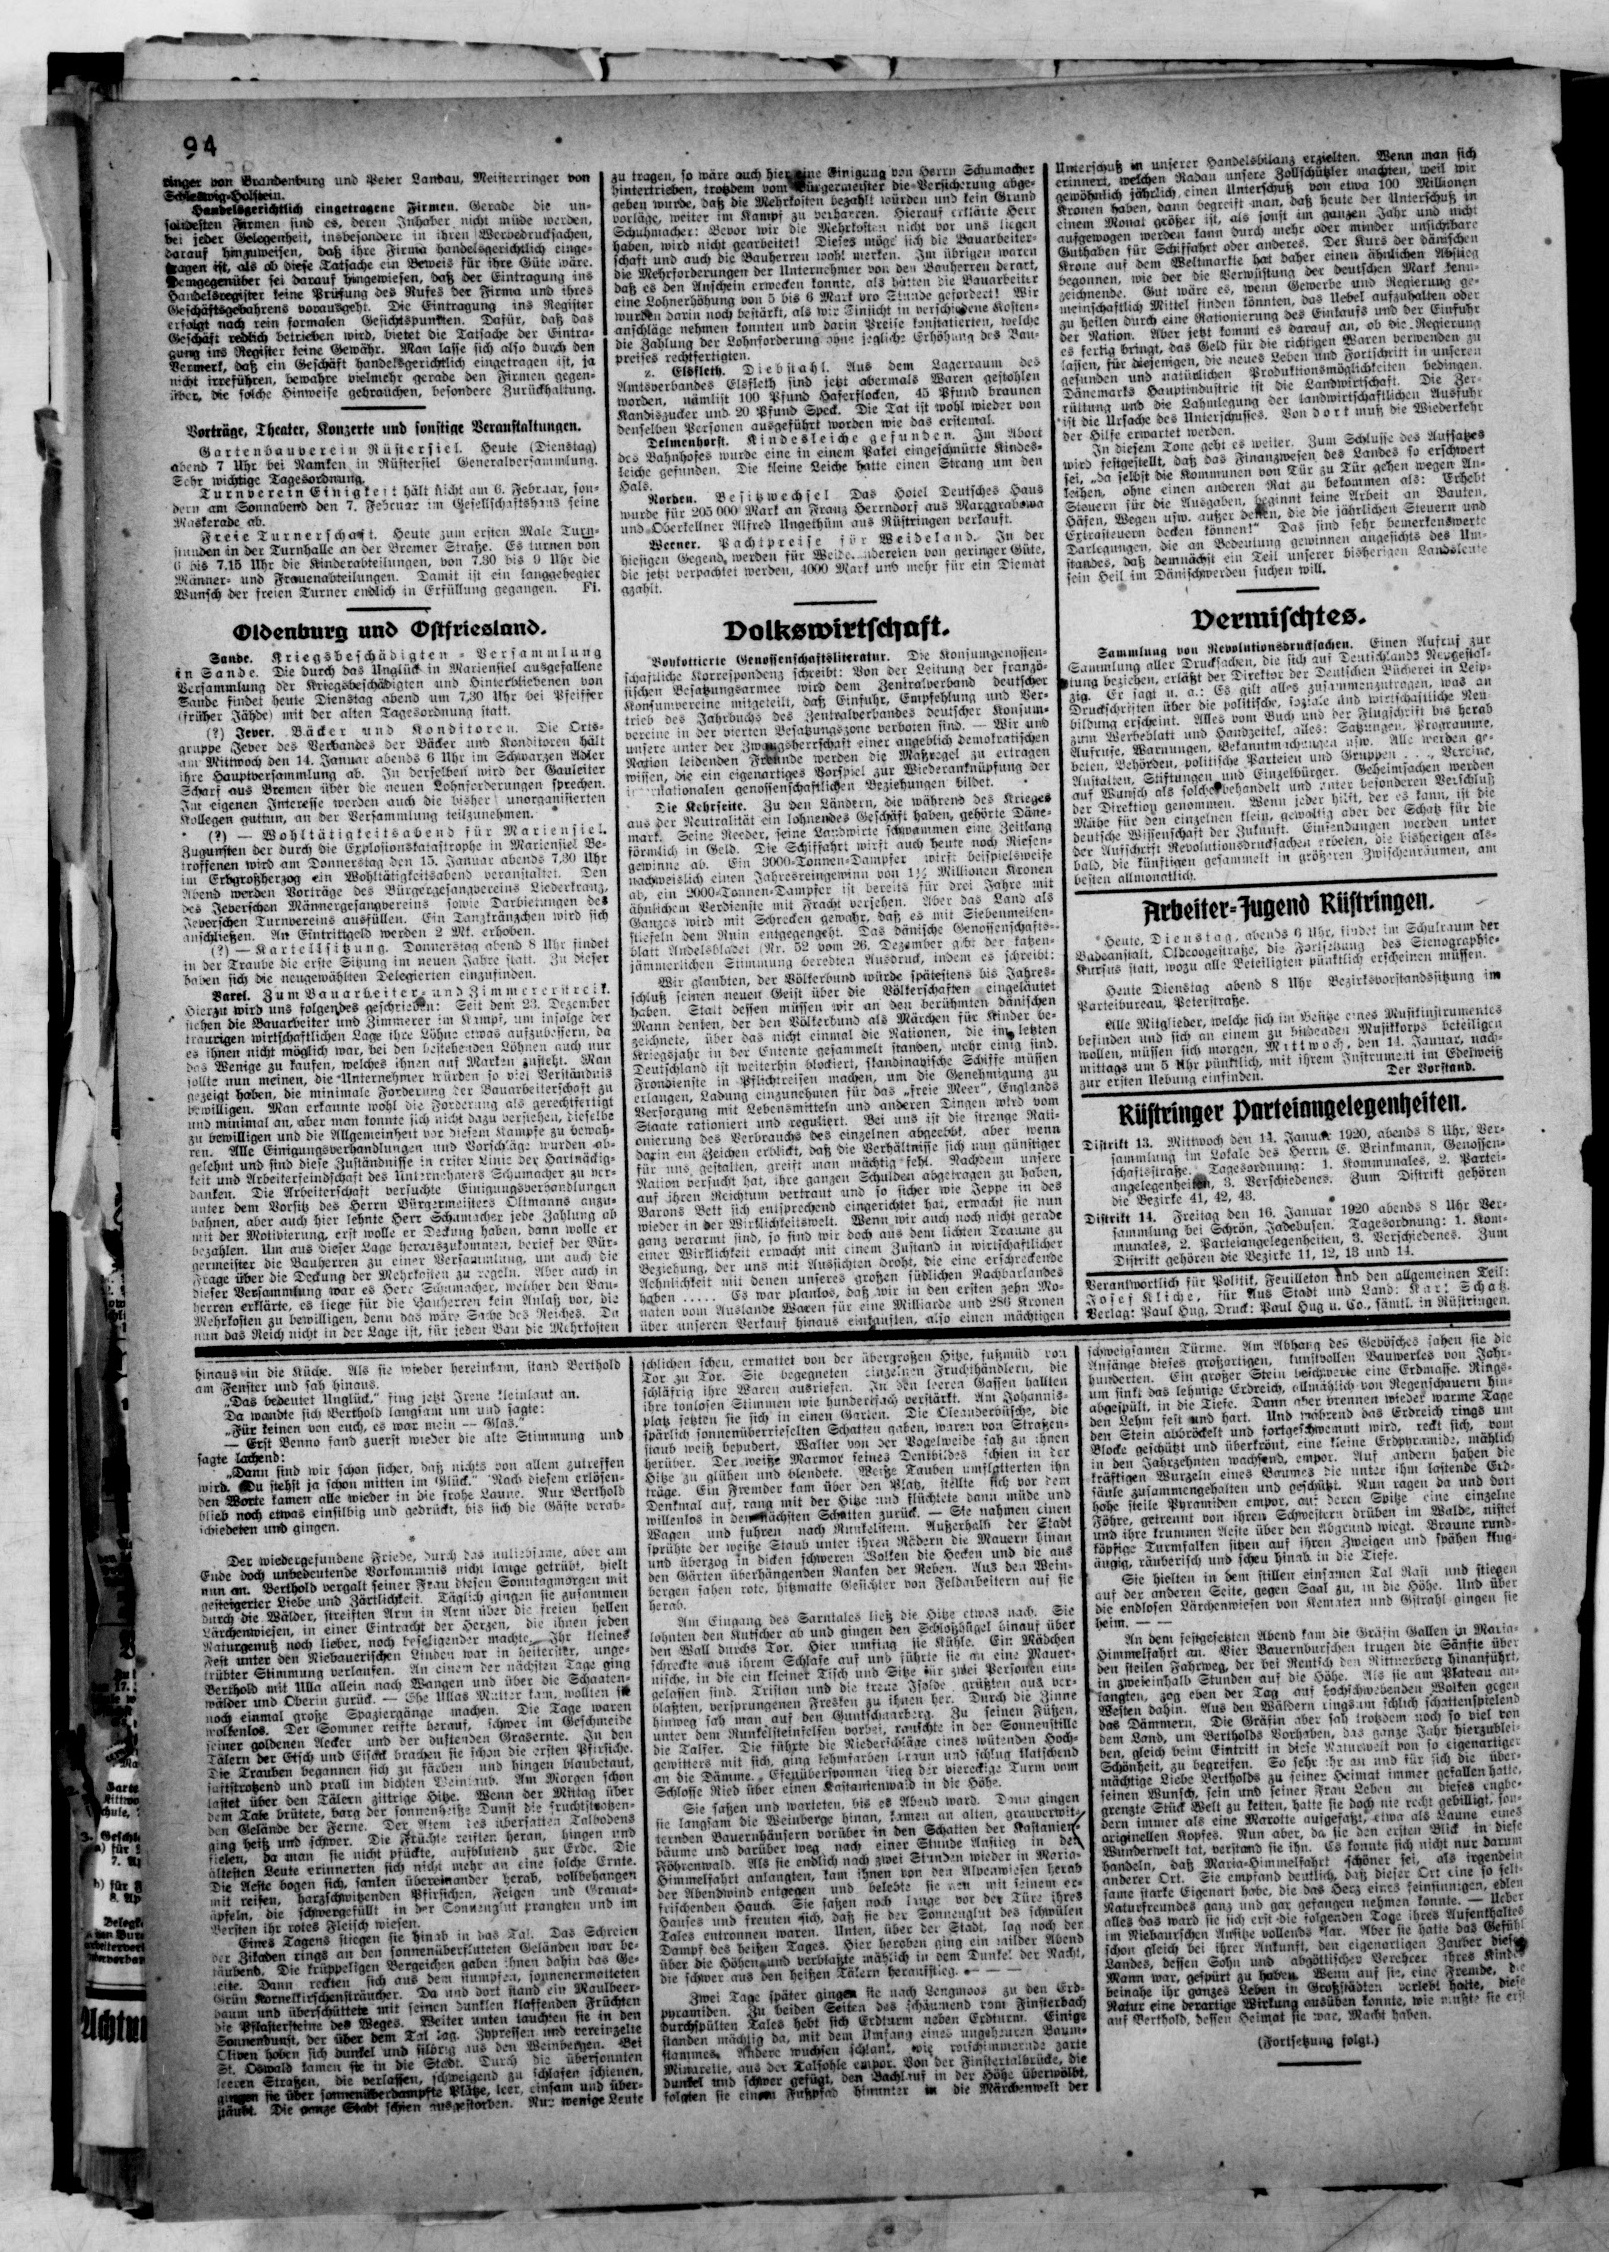 94
ringer von Brandenburg und Peter Landau, Meisterringer von
Schleswig-Holstein.
Handelsgerichtlich eingetragene Firmen. Gerade die un-
solidesten Firmen sind es, deren Inhaber nicht müde werden,
bei jeder Gelegenheit, insbesondere in ihren Werbedrucksachen,
darauf hinzuweisen, daß ihre Firma handelsgerichtlich einge-
tragen ist, als ob diese Tatsache ein Beweis für ihre Güte wäre.
Demgegenüber sei darauf hingewiesen, daß der Eintragung ins
Handelsregister keine Prüfung des Rufes der Firma und ihres
Geschäftsgebahrens vorausgeht. Die Eintragung ins Register
erfolgt nach rein formalen Gesichtspunkten. Dafür, daß das
Geschäft redlich betrieben wird, bietet die Tatsache der Eintra-
gung ins Register keine Gewähr. Man lasse sich also durch den
Vermerk, daß ein Geschäft handelsgerichtlich eingetragen ist, ja
nicht irreführen, bewahre vielmehr gerade den Firmen gegen-
über, die solche Hinweise gebrauchen, besondere Zurückhaltung.
Vorträge, Theater, Konzerte und sonstige Veranstaltungen.
Gartenbauverein Rüstersiel. Heute (Dienstag)
abend 7 Uhr bei Ramken in Rüstersiel Generalversammlung.
Sehr wichtige Tagesordnung.
Turnverein Einigkeit hält nicht am 6. Februar, son-
dern am Sonnabend den 7. Februar im Gesellschaftshaus seine
Maskerade ab.
Freie Turnerschaft. Heute zum ersten Male Turn-
stunden in der Turnhalle an der Bremer Straße. Es turnen von
6 bis 7,15 Uhr die Kinderabteilungen, von 7,30 bis 9 Uhr die
Männer- und Frauenabteilungen. Damit ist ein langgehegter
Wunsch der freien Turner endlich in Erfüllung gegangen. Fl.
Oldenburg und Ostfriesland.
Sande. Kriegsbeschädigten-Versammlung
in Sande. Die durch das Unglück in Mariensiel ausgefallene
Versammlung der Kriegsbeschädigten und Hinterbliebenen von
Sande findet heute Dienstag abend um 7,30 Uhr bei Pfeiffer
(früher Jähde) mit der alten Tagesordnung statt.
(?) Jever. Bäcker und Konditoren. Die Orts-
gruppe Jever des Verbandes der Bäcker und Konditoren hält
am Mittwoch den 14. Januar abends 6 Uhr im Schwarzen Adler
ihre Hauptversammlung ab. In derselben wird der Gauleiter
Scharf aus Bremen über die neuen Lohnforderungen sprechen.
Im eigenen Interesse werden auch die bisher unorganisierten
Kollegen guttun, an der Versammlung teilzunehmen.
(?) — Wohltätigkeitsabend für Mariensiel.
Zugunsten der durch die Explosionskatastrophe in Mariensiel Be-
troffenen wird am Donnerstag den 15. Januar abends 7,30 Uhr
im Erbgroßherzog ein Wohltätigkeitsabend veranstaltet. Den
Abend werden Vorträge des Bürgergesangvereins Liederkranz,
des Jeverschen Männergesangvereins sowie Darbietungen des
Jeverschen Turnvereins ausfüllen. Ein Tanzkränzchen wird sich
anschließen. An Eintrittgeld werden 2 Mk. erhoben.
(?) — Kartellsitzung. Donnerstag abend 8 Uhr findet
in der Traube die erste Sitzung im neuen Jahre statt. Zu dieser
haben sich die neugewählten Delegierten einzufinden.
Varel. Zum Bauarbeiter- und Zimmererstreik.
Hierzu wird uns folgendes geschrieben: Seit dem 23. Dezember
stehen die Bauarbeiter und Zimmerer im Kampf, um infolge der
traurigen wirtschaftlichen Lage ihre Löhne etwas aufzubessern, da
es ihnen nicht möglich war, bei den bestehenden Löhnen auch nur
das Wenige zu kaufen, welches ihnen auf Marken zusteht. Man
sollte nun meinen, die Unternehmer würden so viel Verständnis
gezeigt haben, die minimale Forderung der Bauarbeiterschaft zu
bewilligen. Man erkannte wohl die Forderung als gerechtfertigt
und minimal an, aber man konnte sich nicht dazu verstehen, dieselbe
zu bewilligen und die Allgemeinheit vor diesem Kampfe zu bewah-
ren. Alle Einigungsverhandlungen und Vorschläge wurden ab-
gelehnt und sind diese Zuständnisse in erster Linie der Hartnäckig-
keit und Arbeiterfeindschaft des Unternehmers Schumacher zu ver-
danken. Die Arbeiterschaft versuchte Einigungsverhandlungen
unter dem Vorsitz des Herrn Bürgermeisters Oltmanns anzu-
bahnen, aber auch hier lehnte Herr Schumacher jede Zahlung ab
mit der Motivierung, erst wolle er Deckung haben, dann wolle er
bezahlen. Um aus dieser Lage herauszukommen, berief der Bür-
germeister die Bauherren zu einer Versammlung, um auch die
Frage über die Deckung der Mehrkosten zu regeln. Aber auch in
dieser Versammlung war es Herr Schumacher, welcher den Bau-
herren erklärte, es liege für die Bauherren kein Anlaß vor, die
Mehrkosten zu bewilligen, denn das wäre Sache des Reiches. Da
nun das Reich nicht in der Lage ist, für jeden Bau die Mehrkosten
zu tragen, so wäre auch hier eine Einigung von Herrn Schumacher
hintertrieben, trotzdem vom Bürgermeister die Versicherung abge-
geben wurde, daß die Mehrkosten bezahlt würden und kein Grund
vorläge, weiter im Kampf zu verharren. Hierauf erklärte Herr
Schuhmacher: Bevor wir die Mehrkosten nicht vor uns liegen
haben, wird nicht gearbeitet! Dieses möge sich die Bauarbeiter-
schaft und auch die Bauherren wohl merken. Im übrigen waren
die Mehrforderungen der Unternehmer von den Bauherren derart,
daß es den Anschein erwecken konnte, als hätten die Bauarbeiter
eine Lohnerhöhung von 5 bis 6 Mark pro Stunde gefordert! Wir
wurden darin noch bestärkt, als wir Einsicht in verschiedene Kosten-
anschläge nehmen konnten und darin Preise konstatierten, welche
die Zahlung der Lohnforderung ohne jegliche Erhöhung des Bau-
preises rechtfertigten.
z. Elsfleth. Diebstahl. Aus dem Lagerraum des
Amtsverbandes Elsfleth sind jetzt abermals Waren gestohlen
worden, nämlist 100 Pfund Haferflocken, 45 Pfund braunen
Kandiszucker und 20 Pfund Speck. Die Tat ist wohl wieder von
denselben Personen ausgeführt worden wie das erstemal.
Delmenhorst. Kindesleiche gefunden. Im Abort
des Bahnhofes wurde eine in einem Paket eingeschnürte Kindes-
leiche gefunden. Die kleine Leiche hatte einen Strang um den
Hals.
Norden. Besitzwechsel. Das Hotel Deutsches Haus
wurde für 205 000 Mark an Franz Herrndorf aus Marggrabowa
und Oberkellner Alfred Ungethüm aus Rüstringen verkauft.
Werner. Pachtpreise für Weideland. In der
hiesigen Gegend werden für Weideländereien von geringer Güte,
die jetzt verpachtet werden, 4000 Mark und mehr für ein Diemat
gzahlt.
Volkswirtschaft.
Boykottierte Genossenschaftsliteratur. Die Konsumgenossen-
schaftliche Korrespondenz schreibt: Von der Leitung der franzö-
sischen Besatzungsarmee wird dem Zentralverband deutscher
Konsumvereine mitgeteilt, daß Einfuhr, Empfehlung und Ver-
trieb des Jahrbuchs des Zentralverbandes deutscher Konsum-
vereine in der vierten Besatzungszone verboten sind. — Wir und
unsere unter der Zwangsherrschaft einer angeblich demokratischen
Nation leidenden Freunde werden die Maßregel zu ertragen
wissen, die ein eigenartiges Vorspiel zur Wiederanknüpfung der
internationalen genossenschaftlichen Beziehungen bildet.
Die Kehrseite. Zu den Ländern, die während des Krieges
aus der Neutralität ein lohnendes Geschäft haben, gehörte Däne-
mark. Seine Reeder, seine Landwirte schwammen eine Zeitlang
förmlich in Geld. Die Schiffahrt wirft auch heute noch Riesen-
gewinne ab. Ein 3000-Tonnen-Dampfer wirft beispielsweise
nachweislich einen Jahresreingewinn von 1½ Millionen Kronen
ab, ein 2000-Tonnen-Dampfer ist bereits für drei Jahre mit
ähnlichem Verdienste mit Fracht versehen. Aber das Land als
Ganzes wird mit Schrecken gewahr, daß es mit Siebenmeilen-
stiefeln dem Ruin entgegengeht. Das dänische Genossenschafts-
blatt Andelsbladet (Nr. 52 vom 26. Dezember gibt der katzen-
jämmerlichen Stimmung beredten Ausdruck, indem es schreibt:
Wir glaubten, der Völkerbund würde spätestens bis Jahres-
schluß seinen neuen Geist über die Völkerschaften eingeläutet
haben. Statt dessen müssen wir an den berühmten dänischen
Mann denken, der den Völkerbund als Märchen für Kinder be-
zeichnete, über das nicht einmal die Nationen, die im letzten
Kriegsjahr in der Entente gesammelt standen, mehr einig sind.
Deutschland ist weiterhin blockiert, skandinavische Schiffe müssen
Frondienste in Pflichtreisen machen, um die Genehmigung zu
erlangen, Ladung einzunehmen für das „freie Meer“, Englands
Versorgung mit Lebensmitteln und anderen Dingen wird vom
Staate rationiert und reguliert. Bei uns ist die strenge Rati-
onierung des Verbrauchs des einzelnen abgeebbt, aber wenn
darin ein Zeichen erblickt, daß die Verhältnisse sich nun günstiger
für uns gestalten, greift man mächtig fehl. Nachdem unsere
Nation versucht hat, ihre ganzen Schulden abgetragen zu haben,
auf ihren Reichtum vertraut und so sicher wie Jeppe in des
Barons Bett sich entsprechend eingerichtet hat, erwacht sie nun
wieder in der Wirklichkeitswelt. Wenn wir auch noch nicht gerade
ganz verarmt sind, so sind wir doch aus dem lichten Traume zu
einer Wirklichkeit erwacht mit einem Zustand in wirtschaftlicher
Beziehung, der uns mit Aussichten droht, die eine erschreckende
Aehnlichkeit mit denen unseres großen südlichen Nachbarlandes
haben ..... Es war planlos, daß wir in den ersten zehn Mo-
naten vom Auslande Waren für eine Milliarde und 286 Kronen
über unseren Verkauf hinaus einkauften, also einen mächtigen
Unterschuß in unserer Handelsbilanz erzielten. Wenn man sich
erinnert, welchen Radau unsere Zollschützler machten, weil wir
gewöhnlich jährlich einen Unterschuß von etwa 100 Millionen
Kronen haben, dann begreift man, daß heute der Unterschuß in
einem Monat größer ist, als sonst im ganzen Jahr und nicht
aufgewogen werden kann durch mehr oder minder unsichtbare
Guthaben für Schiffahrt oder anderes. Der Kurs der dänischen
Krone auf dem Weltmarkte hat daher einen ähnlichen Abstieg
begonnen, wie der die Verwüstung der deutschen Mark kenn-
zeichnende. Gut wäre es, wenn Gewerbe und Regierung ge-
meinschaftlich Mittel finden könnten, das Uebel aufzuhalten oder
zu heilen durch eine Rationierung des Einkaufs und der Einfuhr
der Nation. Aber jetzt kommt es darauf an, ob die Regierung
es fertig bringt, das Geld für die richtigen Waren verwenden zu
lassen, für diejenigen, die neues Leben und Fortschritt in unseren
gesunden und natürlichen Produktionsmöglichkeiten bedingen.
Dänemarks Hauptindustrie ist die Landwirtschaft. Die Zer-
rüttung und die Lahmlegung der landwirtschaftlichen Ausfuhr
ist die Ursache des Unterschusses. Von dort muß die Wiederkehr
der Hilfe erwartet werden.
In diesem Tone geht es weiter. Zum Schlusse des Aufsatzes
wird festgestellt, daß das Finanzwesen des Landes so erschwert
sei, „da selbst die Kommunen von Tür zu Tür gehen wegen An-
leihen, ohne einen anderen Rat zu bekommen als: Erhebt
Steuern für die Ausgaben, beginnt keine Arbeit an Bauten,
Häfen, Wegen usw. außer denen, die die jährlichen Steuern und
Extrasteuern decken können!“ Das sind sehr bemerkenswerte
Darlegungen, die an Bedeutung gewinnen angesichts des Um-
standes, daß demnächst ein Teil unserer bisherigen Landsleute
sein Heil im Dänischwerden suchen will.
Vermischtes.
Sammlung von Revolutionsdrucksachen. Einen Aufruf zur
Sammlung aller Drucksachen, die sich auf Deutschlands Neugestal-
tung beziehen, erläßt der Direktor der Deutschen Bücherei in Leip-
zig. Er sagt u. a.: Es gilt alles zusammenzutragen, was an
Druckschriften über die politische, soziale und wirtschaftliche Neu-
bildung erscheint. Alles vom Buch und der Flugschrift bis herab
zum Werbeblatt und Handzettel, alles: Satzungen, Programme,
Aufrufe, Warnungen, Bekanntmachungen usw. Alle werden ge-
beten, Behörden, politische Parteien und Gruppen ...., Vereine,
Anstalten, Stiftungen und Einzelbürger. Geheimsachen werden
auf Wunsch als solche behandelt und unter besonderen Verschluß
der Direktion genommen. Wenn jeder hilft, der es kann, ist die
Mühe für den einzelnen klein, gewaltig aber der Schatz für die
deutsche Wissenschaft der Zukunft. Einsendungen werden unter
der Aufschrift Revolutionsdrucksachen erbeten, die bisherigen als-
bald, die künftigen gesammelt in größeren Zwischenräumen, am
besten allmonatlich.
Arbeiter-Jugend Rüstringen.
Heute, Dienstag, abends 6 Uhr, findet im Schulraum der
Badeanstalt, Oldeoogestraße, die Fortsetzung des Stenographie-
Kursus statt, wozu alle Beteiligten pünktlich erscheinen müssen.
Heute Dienstag abend 8 Uhr Bezirksvorstandssitzung im
Parteibureau, Peterstraße.
Alle Mitglieder, welche sich im Besitze eines Musikinstrumentes
befinden und sich an einem zu bildenden Musikkorps beteiligen
wollen, müssen sich morgen, Mittwoch, den 14. Januar, nach-
mittags um 5 Uhr pünktlich, mit ihrem Instrument im Edelweiß
zur ersten Uebung einfinden. Der Vorstand.
Rüstringer Parteiangelegenheiten.
Distrikt 13. Mittwoch den 14. Januar 1920, abends 8 Uhr, Ver-
sammlung im Lokale des Herrn E. Brinkmann, Genossen-
schaftsstraße. Tagesordnung: 1. Kommunales, 2. Partei-
angelegenheiten, 3. Verschiedenes. Zum Distrikt gehören
die Bezirke 41, 42, 43.
Distrikt 14. Freitag den 16. Januar 1920 abends 8 Uhr Ver-
sammlung bei Schrön, Jadebusen. Tagesordnung: 1. Kom-
munales, 2. Parteiangelegenheiten, 3. Verschiedenes. Zum
Distrikt gehören die Bezirke 11, 12, 13 und 14.
Verantwortlich für Politik, Feuilleton und den allgemeinen Teil:
Josef Kliche, für Aus Stadt und Land: Karl Schatz.
Verlag: Paul Hug, Druck: Paul Hug u. Co., sämtl. in Rüstringen.
hinaus in die Küche. Als sie wieder hereinkam, stand Berthold
am Fenster und sah hinaus.
„Das bedeutet Unglück,“ fing jetzt Irene kleinlaut an.
Da wandte sich Berthold langsam um und sagte:
„Für keinen von euch, es war mein — Glas.“
— Erst Benno fand zuerst wieder die alte Stimmung und
sagte lachend:
„Dann sind wir schon sicher, daß nichts von allem zutreffen
wird. Du stehst ja schon mitten im Glück.“ Nach diesem erlösen-
den Worte kamen alle wieder in die frohe Laune. Nur Berthold
blieb noch etwas einsilbig und gedrückt, bis sich die Gäste verab-
schiedeten und gingen.
*
Der wiedergefundene Friede, durch das unliebsame, aber am
Ende doch unbedeutende Vorkommnis nicht lange getrübt, hielt
nun an. Berthold vergalt seiner Frau diesen Sonntagmorgen mit
gesteigerter Liebe und Zärtlichkeit. Täglich gingen sie zusammen
durch die Wälder, streiften Arm in Arm über die freien hellen
Lärchenwiesen, in einer Eintracht der Herzen, die ihnen jeden
Naturgenuß noch lieber, noch beseligender machte. Ihr kleines
Fest unter den Niebauerischen Linden war in heiterster, unge-
trübter Stimmung verlaufen. An einem der nächsten Tage ging
Berthold mit Ulla allein nach Wangen und über die Schaaten-
wälder und Oberin zurück. — Ehe Ullas Mutter kam, wollten sie
noch einmal große Spaziergänge machen. Die Tage waren
wolkenlos. Der Sommer reifte herauf, schwer im Geschmeide
seiner goldenen Aecker und der duftenden Grasernte. In den
Tälern der Etsch und Eisack brachen sie schon die ersten Pfirsiche.
Die Trauben begannen sich zu färben und hingen blaubetaut,
saftstrotzend und prall im dichten Weinlaub. Am Morgen schon
lastet über den Tälern zittrige Hitze. Wenn der Mittag über
dem Tale brütete, barg der sonnenheiße Dunst die fruchtstrotzen-
den Gelände der Ferne. Der Atem des übersatten Talbodens
ging heiß und schwer. Die Früchte reiften heran, hingen und
fielen, da man sie nicht pfückte, aufblutend zur Erde. Die
ältesten Leute erinnerten sich nicht mehr an eine solche Ernte.
Die Aeste bogen sich, sanken übereinander herab, vollbehangen
mit reifen, harzschwitzenden Pfirsichen, Feigen und Granat-
äpfeln, die schwergefüllt in der Sonnenglut prangten und im
Bersten ihr rotes Fleisch wiesen.
Eines Tagens stiegen sie hinab in das Tal. Das Schreien
der Zikaden rings an den sonnenüberfluteten Geländen war be-
täubend. Die krüppeligen Bergeichen gaben ihnen dahin das Ge-
leite. Dann reckten sich aus dem stumpfen, sonnenermatteten
Grün Kornelkirschensträucher. Da und dort stand ein Maulbeer-
baum und überschüttete mit seinen dunklen klaffenden Früchten
die Pflastersteine des Weges. Weiter unten tauchten sie in den
Sonnendunst, der über dem Tal lag. Zypressen und vereinzelte
Oliven hoben sich dunkel und silbrig aus den Weinbergen. Bei
St. Oswald kamen sie in die Stadt. Durch die übersonnten
leeren Straßen, die verlassen, schweigend zu schlafen schienen,
gingen sie über sonnenüberdampfte Plätze, leer, einsam und über-
stäubt. Die ganze Stadt schien ausgestorben. Nur wenige Leute
schlichen scheu, ermattet von der übergroßen Hitze, fußmüd von
Tor zu Tor. Sie begegneten einzelnen Fruchthändlern, die
schläfrig ihre Waren ausriefen. In den leeren Gassen hallten
ihre tonlosen Stimmen wie hundertfach verstärkt. Am Johannis-
platz setzten sie sich in einen Garten. Die Oleanderbüsche, die
spärlich sonnenüberrieselten Schatten gaben, waren von Straßen-
staub weiß bepudert. Walter von der Vogelweide sah zu ihnen
herüber. Der weiße Marmor seines Denkbildes schien in der
Hitze zu glühen und blendete. Weiße Tauben umflatterten ihn
träge. Ein Fremder kam über den Platz, stellte sich vor dem
Denkmal auf, rang mit der Hitze und flüchtete dann müde und
willenlos in den nächsten Schatten zurück. — Sie nahmen einen
Wagen und fuhren nach Runkelstein. Außerhalb der Stadt
sprühte der weiße Staub unter ihren Rädern die Mauern hinan
und überzog in dicken schweren Wolken die Hecken und die aus
den Gärten überhängenden Ranken der Reben. Aus den Wein-
bergen sahen rote, hitzmatte Gesichter von Feldarbeitern auf sie
herab.
Am Eingang des Sarntales ließ die Hitze etwas nach. Sie
lohnten den Kutscher ab und gingen den Schloßhügel hinauf über
den Wall durchs Tor. Hier umfing sie Kühle. Ein Mädchen
schreckte aus ihrem Schlafe auf und führte sie an eine Mauer-
nische, in die ein kleiner Tisch und Sitze für zwei Personen ein-
gelassen sind. Tristan und die treue Isolde grüßten aus ver-
blaßten, versprungenen Fresken zu ihnen her. Durch die Zinne
hinweg sah man auf den Guntschnaerberg. Zu seinen Füßen,
unter dem Runkelsteinfelsen vorbei, rauschte in der Sonnenstille
die Talfer. Die führte die Niederschläge eines wütenden Hoch-
gewitters mit sich, ging lehmfarben braun und schlug klatschend
an die Dämme. Efeuübersponnen stieg der viereckige Turm vom
Schlosse Ried über einen Kastanienwald in die Höhe.
Sie saßen und warteten, bis es Abend ward. Dann gingen
sie langsam die Weinberge hinan, kamen an alten, grauverwit-
ternden Bauernhäusern vorüber in den Schatten der Kastanien-
bäume und darüber weg nach einer Stunde Anstieg in den
Föhrenwald. Als sie endlich nach zwei Stunden wieder in Maria-
Himmelfahrt anlangten, kam ihnen von den Alpenwiesen herab
der Abendwind entgegen und belebte sie nen mit seinem er-
frischenden Hauch. Sie saßen noch lange vor der Türe ihres
Hauses und freuten sich, daß sie der Sonnenglut des schwülen
Tales entronnen waren. Unten, über der Stadt, lag noch der
Dampf des heißen Tages. Hier heroben ging ein milder Abend
über die Höhen und verblaßte mählich in dem Dunkel der Nacht,
die schwer aus den heißen Tälern heraufstieg. — — —
Zwei Tage später gingen sie nach Lengmoos zu den Erd-
pyramiden. Zu beiden Seiten des schäumend vom Finsterbach
durchspülten Tales hebt sich Erdturm neben Erdturm. Einige
standen mächtig da, mit dem Umfang eines ungeheuren Baum-
stammes. Andere wuchsen schlank, wie rotschimmernde zarte
Minarette, aus der Talsohle empor. Von der Finstertalbrücke, die
dunkel und schwer gefügt, den Bachlauf in der Höhe überwölbt,
folgten sie einem Fußpfad hinunter in die Märchenwelt der
schweigsamen Türme. Am Abhang des Gehösches sahen sie die
Anfänge dieses großartigen, kunstvollen Bauwerkes von Jahr-
hunderten. Ein großer Stein beschwerte eine Erdmasse. Rings-
um sinkt das lehmige Erdreich, allmählich von Regenschauern hin-
abgespült, in die Tiefe. Dann aber brennen wieder warme Tage
den Lehm fest und hart. Und während das Erdreich rings um
den Stein abbröckelt und fortgeschwemmt wird, reckt sich, vom
Blocke geschützt und überkrönt, eine kleine Erdpyramide, mählich
in den Jahrzehnten wachsend, empor. Auf andern haben die
kräftigen Wurzeln eines Baumes die unter ihm lastende Erd-
säule zusammengehalten und geschützt. Nun ragen da und dort
hohe steile Pyramiden empor, auf deren Spitze eine einzelne
Föhre, getrennt von ihren Schwestern drüben im Walde, nistet
und ihre krummen Aeste über den Abgrund wiegt. Braune rund-
köpfige Turmfalken sitzen auf ihren Zweigen und spähen klug-
äugig, räuberisch und scheu hinab in die Tiefe.
Sie hielten in dem stillen einsamen Tal Rast und stiegen
auf der anderen Seite, gegen Saal zu, in die Höhe. Und über
die endlosen Lärchenwiesen von Kematen und Gstrahl gingen sie
heim. — —
An dem festgesetzten Abend kam die Gräfin Gallen in Maria-
Himmelfahrt an. Vier Bauernburschen trugen die Sänfte über
den steilen Fahrweg, der bei Rentsch den Rittnerberg hinanführt,
in zweieinhalb Stunden auf die Höhe. Als sie am Plateau an-
langten, zog eben der Tag auf hochschwebenden Wolken gegen
Westen dahin. Aus den Wäldern ringsum schlich schattenspielend
das Dämmern. Die Gräfin aber sah trotzdem noch so viel von
dem Land, um Bertholds Vorhaben, das ganze Jahr hierzublei-
ben, gleich beim Eintritt in diese Naturwelt von so eigenartiger
Schönheit, zu begreifen. So sehr ihr an und für sich die über-
mächtige Liebe Bertholds zu seiner Heimat immer gefallen hatte,
seinen Wunsch, sein und seiner Frau Leben an dieses engbe-
grenzte Stück Welt zu ketten, hatte sie doch nie recht gebilligt, son-
dern immer als eine Marotte aufgefaßt, etwa als Laune eines
originellen Kopfes. Nun aber, da sie den ersten Blick in diese
Wunderwelt tat, verstand sie ihn. Es konnte sich nicht nur darum
handeln, daß Maria-Himmelfahrt schöner sei, als irgendein
anderer Ort. Sie empfand deutlich, daß dieser Ort eine so selt-
same starke Eigenart habe, die das Herz eines feinsinnigen, edlen
Naturfreundes ganz und gar gefangen nehmen konnte. — Ueber
alles das ward sie sich erst die folgenden Tage ihres Aufenthaltes
im Niebaurschen Ansitze vollends klar. Aber sie hatte das Gefühl
schon gleich bei ihrer Ankunft, den eigenartigen Zauber dieses
Landes, dessen Sohn und abgöttischer Verehrer ihres Kindes
Mann war, gespürt zu haben. Wenn auf sie, eine Fremde, die
beinahe ihr ganzes Leben in Großstädten verlebt hatte, diese
Natur eine derartige Wirkung ausüben konnte, wie mußte sie erst
auf Berthold, dessen Heimat sie war, Macht haben.
(Fortsetzung folgt.)